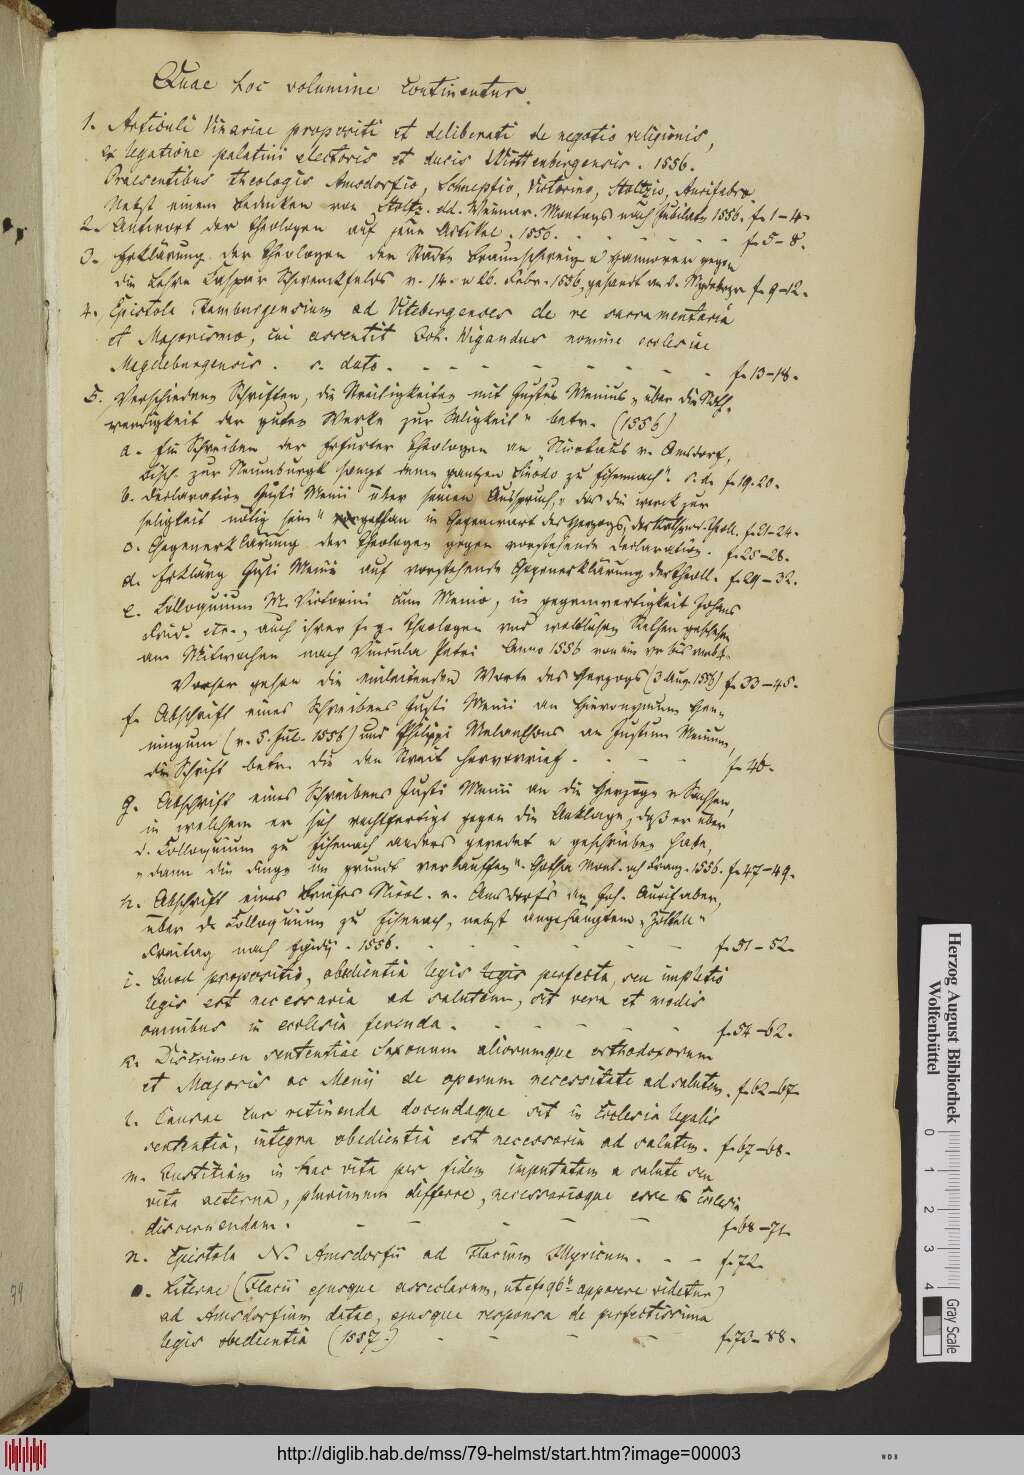 Quae hoc volumine continentur.
1. Articuli Vinariae propositi et deliberati de negotio religionis,
ex legatione palatini electoris et ducis Wirttenbergensis. 1556.
Praesentibus theologis Amsdorfio, Schnepfio, Victorino, Stoltzio, Aurifabro.
Nebst einem Bedenken von Stoltz. dd. Weimar. Montags nach Jubilate 1556. f. 1–4.
2. Antwort der Theologen auf jene Artikel. 1556. f. 5–8.
3. Erklärung der Theologen der Städte Braunschweig u. Hannover gegen
die Lehre Caspar Schwenckfelds v. 14. u. 26. Febr. 1556, gesandt an d. f. 9–12.
4. Epistola Hamburgensium ad Vitebergenses de re sacramentaria
et Majorismo, cui assentit Joh. Wigandus nomine ecclesiae
Magdeburgensis. s. dato. f. 13–18.
5. Verschiedene Schriften, die Streitigkeiten mit Justus Menius „über die Noth-
wendigkeit der guten Werke zur Seligkeit“ betr. (1556)
a. Ein Schreiben der Erfurter Theologen an „Nicolaus v. Amsdorf,
Bisch. zur Neumburgk sampt dem gantzen Sinodo zu Eisennach“. s. d. f. 19–20.
b. Declaration Justi Menii über seinen Ausspruch, „das die werck zur
seligkeit nötig sein“ in Gegenwart des Herzogs, der Theoll. f. 21–24.
c. Gegenerklärung der Theologen gegen vorstehende Declaration. f. 25–28.
d. Erklärg Justi Menii auf vorstehende Gegenerklärung der Theoll. f. 29–32.
e. Colloquium M. Victorini cum Menio, in gegenwertigkeit Johans
Frid. etc., auch ihrer f. g. Theologen und weltlichen Rethen geschehen
am Mitwochen nach Vincula Petri Anno 1556
Vorher gehen die einleitenden Worte des Herzogs (3 Aug. 1556) f. 33–45.
f. Abschrift eines Schreibens Justi Menii an Hieronymum
(v. 5. Jul. 1556) und Philippi Melanthons an Justum Menium,
die Schrift betr. die den Streit hervorrief. f. 46.
g. Abschrift eines Schreibens Justi Menii an die Herzöge v. Sachsen,
in welchem er sich rechtfertigt gegen die Anklage, daß er über
d. Colloquium zu Eisenach anders geredet u. geschrieben habe,
„dann die dinge im grunde verlauffen“. Gotha Mont. nch Franz. 1556. f. 47–49.
h. Abschrift eines Briefes Nicol. v. Amsdorfs an Joh. Aurifaber,
über d. Colloquium zu Eisenach, nebst angehängtem „Zettell“
Freitag nach Egidij. 1556. f. 51–52.
i. Quod propositio, obedientia legis legis perfecta, seu impletio
legis est necessaria ad salutem, sit vera et modis
omnibus in ecclesia ferenda. f. 54–62.
k. Discrimen sententiae Saxonum aliorumque orthodoxorum
et Majoris ac Menij de operum necessitate ad salutem. f. 62–67.
l. Causae cur retinenda docendaque sit in Ecclesia legalis
sententia, integra obedientia est necessaria ad salutem. f. 67–68.
m. Justitiam in hac vita per fidem imputatam a salute seu
vita aeterna, plurimum differre, necessarioque esse in Ecclesia
discernendam. f. 68–71.
n. Epistola N. Amsdorfii ad Flacium Illyricum. f. 72.
o. Literae (Flacii ejusque asseclarum, ut e f. 96b apparere videtur)
ad Amsdorfium datae, ejusque responsa de perfectissima
legis obedientia (1557.) f. 73–88.
79
Herzog August Bibliothek
Wolfenbüttel
0 1 2 3 4
Gray Scale
http://diglib.hab.de/mss/79-helmst/start.htm?image=00003
WDB